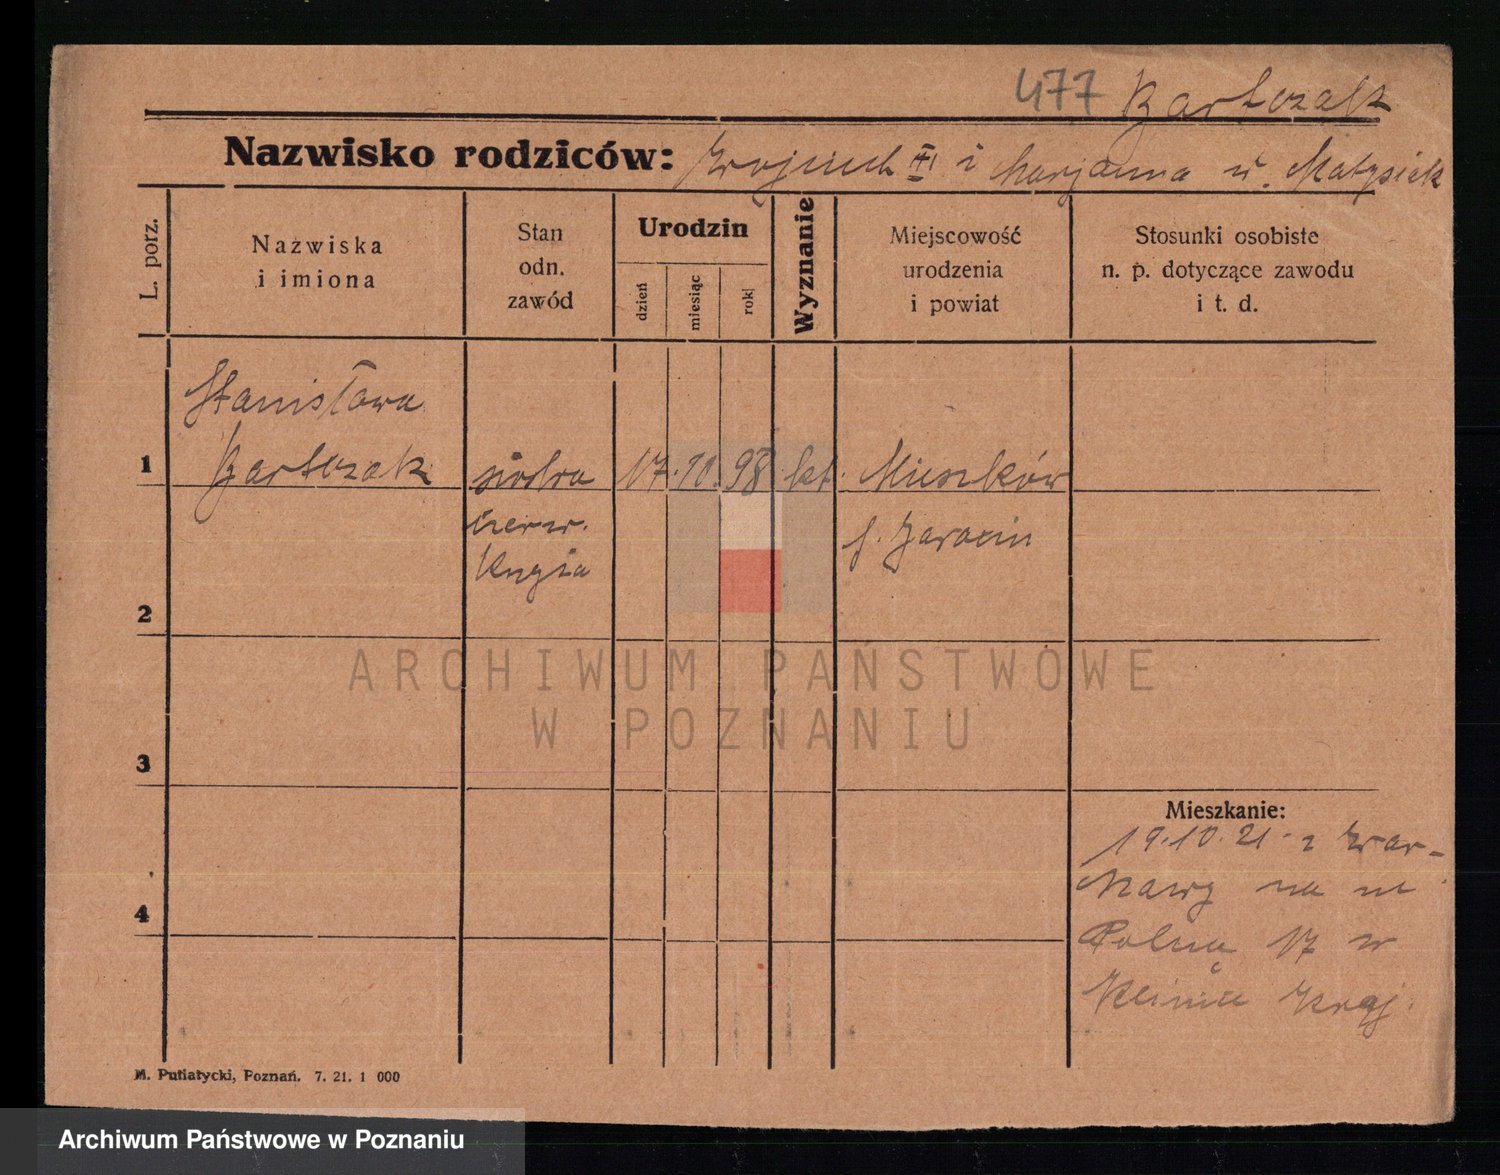 477 Bartczak
Nazwisko rodziców: Wojciech i Marjanna u. Matysiak
L. porz.
Nazwiska
i imiona
Stan
odn.
zawód
Urodzin
dzień
miesiąc
rok
Wyznanie
Miejscowość
urodzenia
i powiat
Stosunki osobiste
n. p. dotyczące zawodu
i t. d.
Stanisława
1 Bartczak siostra 17. 10. 98 kat. Mieszków
czerw. p. Jarocin
Krzyża
2
ARCHIWUM PAŃSTWOWE
W POZNANIU
3
Mieszkanie:
19.10.21 z War-
szawy na ul
4 Polną 17 w
Klinice Kraj.
M. Putiatycki, Poznań. 7. 21. 1 000
Archiwum Państwowe w Poznaniu